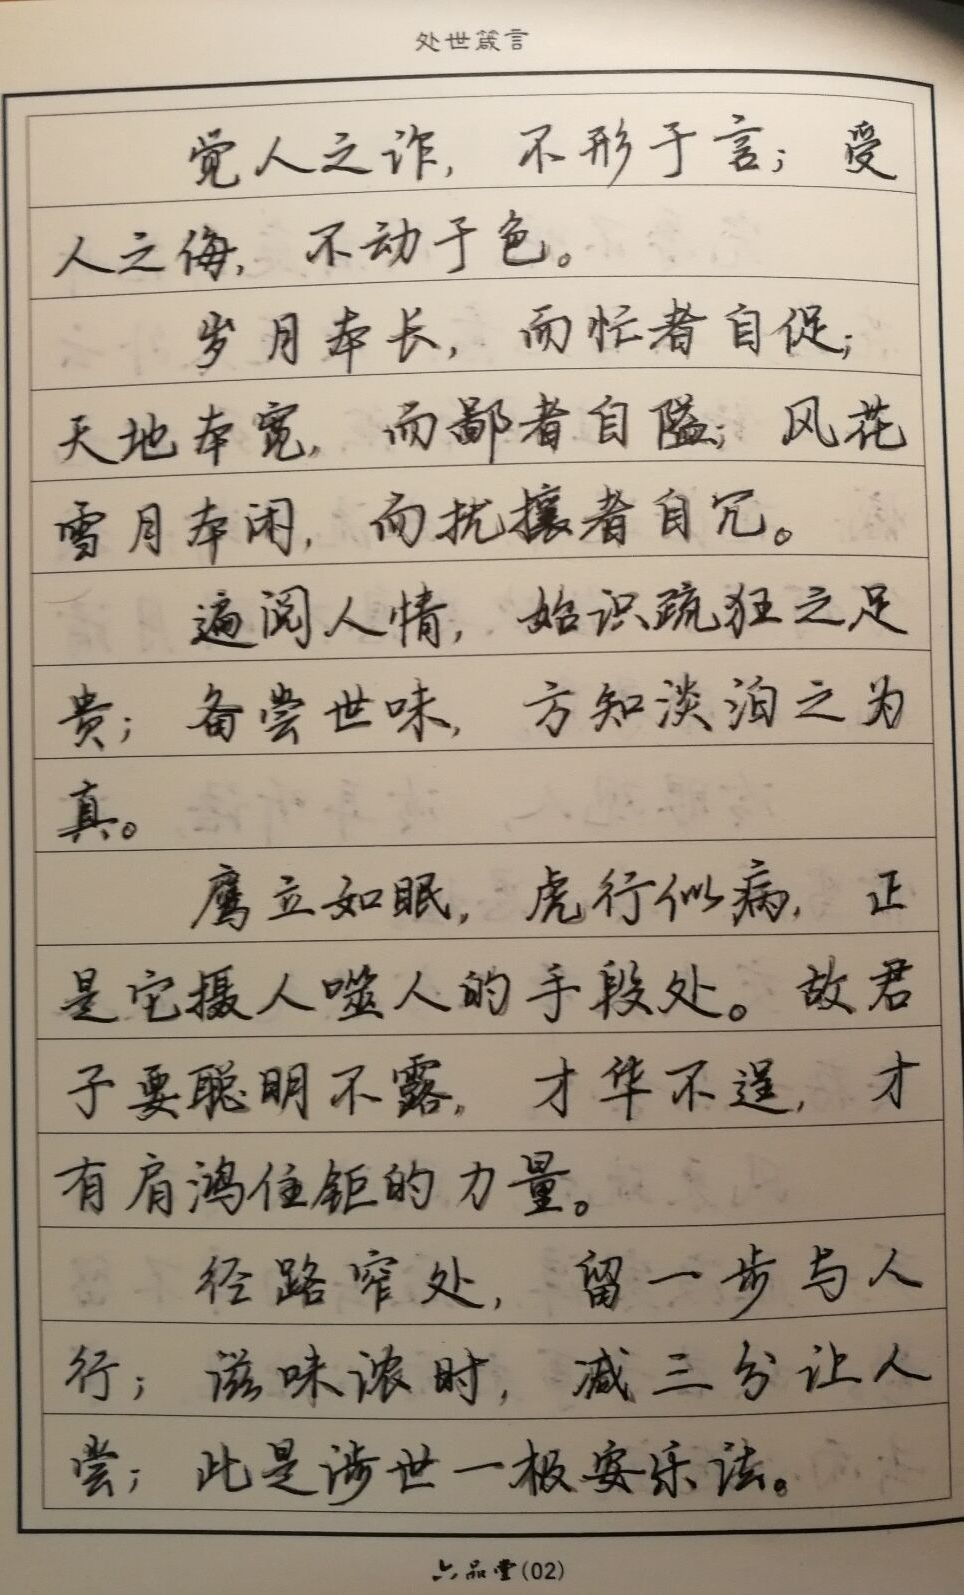 处世箴言
觉人之诈,不形于言;受
人之侮,不动于色。
岁月本长,而忙者自促;
天地本宽,而鄙者自隘;风花
雪月本闲,而扰攘者自冗。
遍阅人情,始识疏狂之足
贵;备尝世味,方知淡泊之为
真。
鹰立如眠,虎行似病,正
是它摄人噬人的手段处。故君
子要聪明不露,才华不逞,才
有肩鸿任钜的力量。
径路窄处,留一步与人
行;滋味浓时,减三分让人
尝;此是涉世一极安乐法。
六品堂(02)